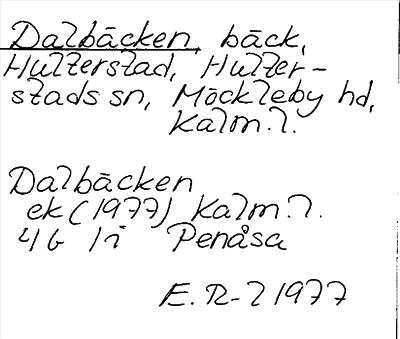 Dalbäcken, bäck,
Hulterstad, Hulter-
stads sn, Möckleby hd,
Kalm. l.
Dalbäcken
ek (1977) Kalm. l.
4G 1i Penåsa
E. R-l 1977